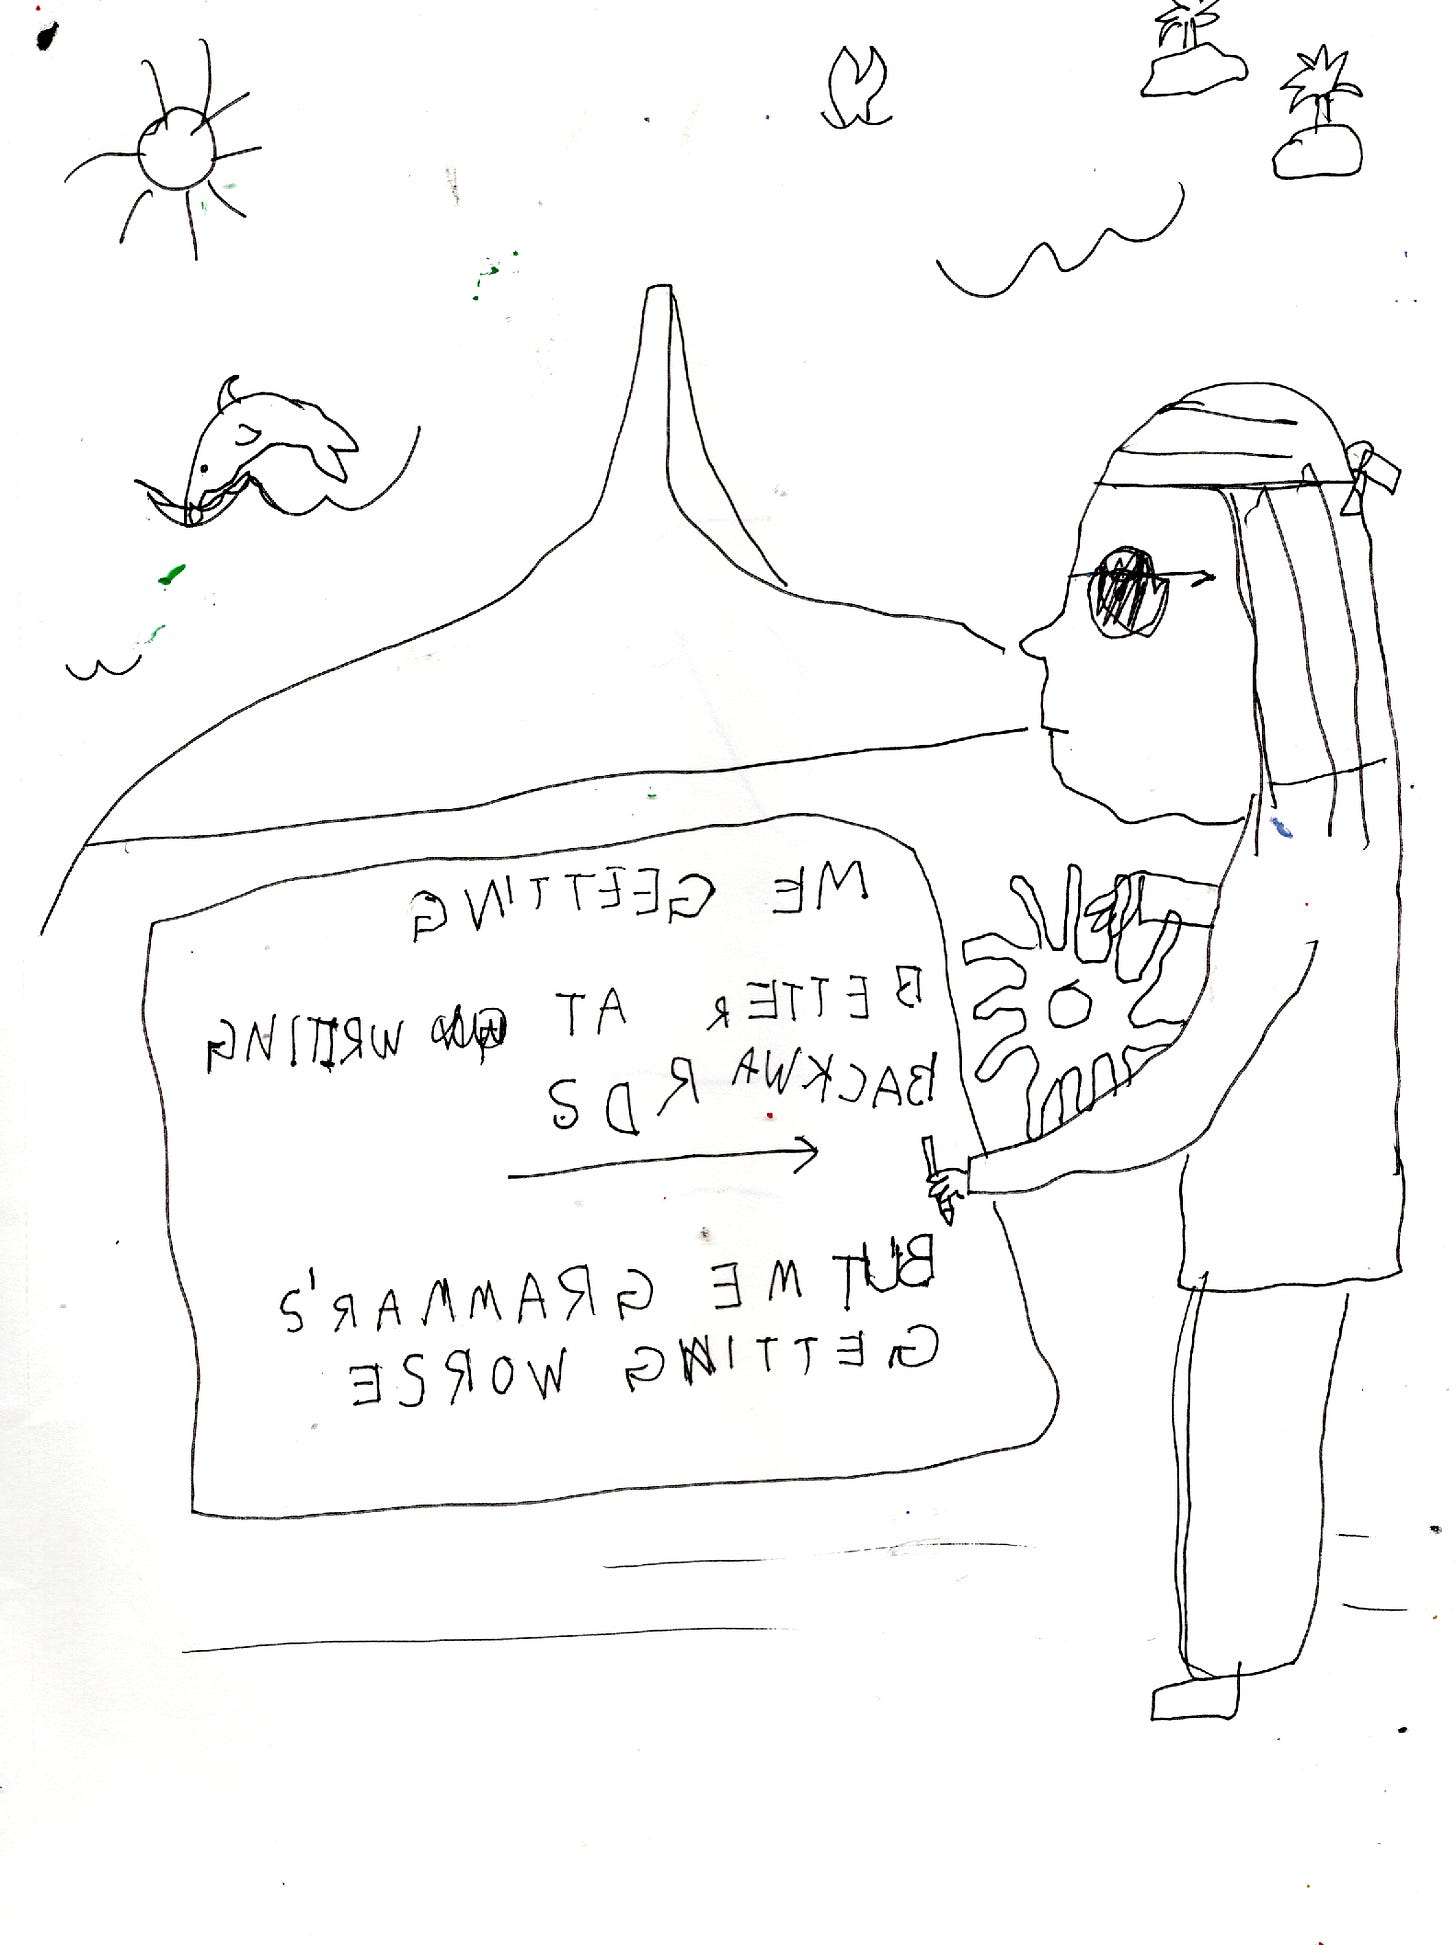 ME GEETTING
BETTER AT WRITING
BACKWARDS
BUT ME GRAMMAR'S
GETTING WORSE